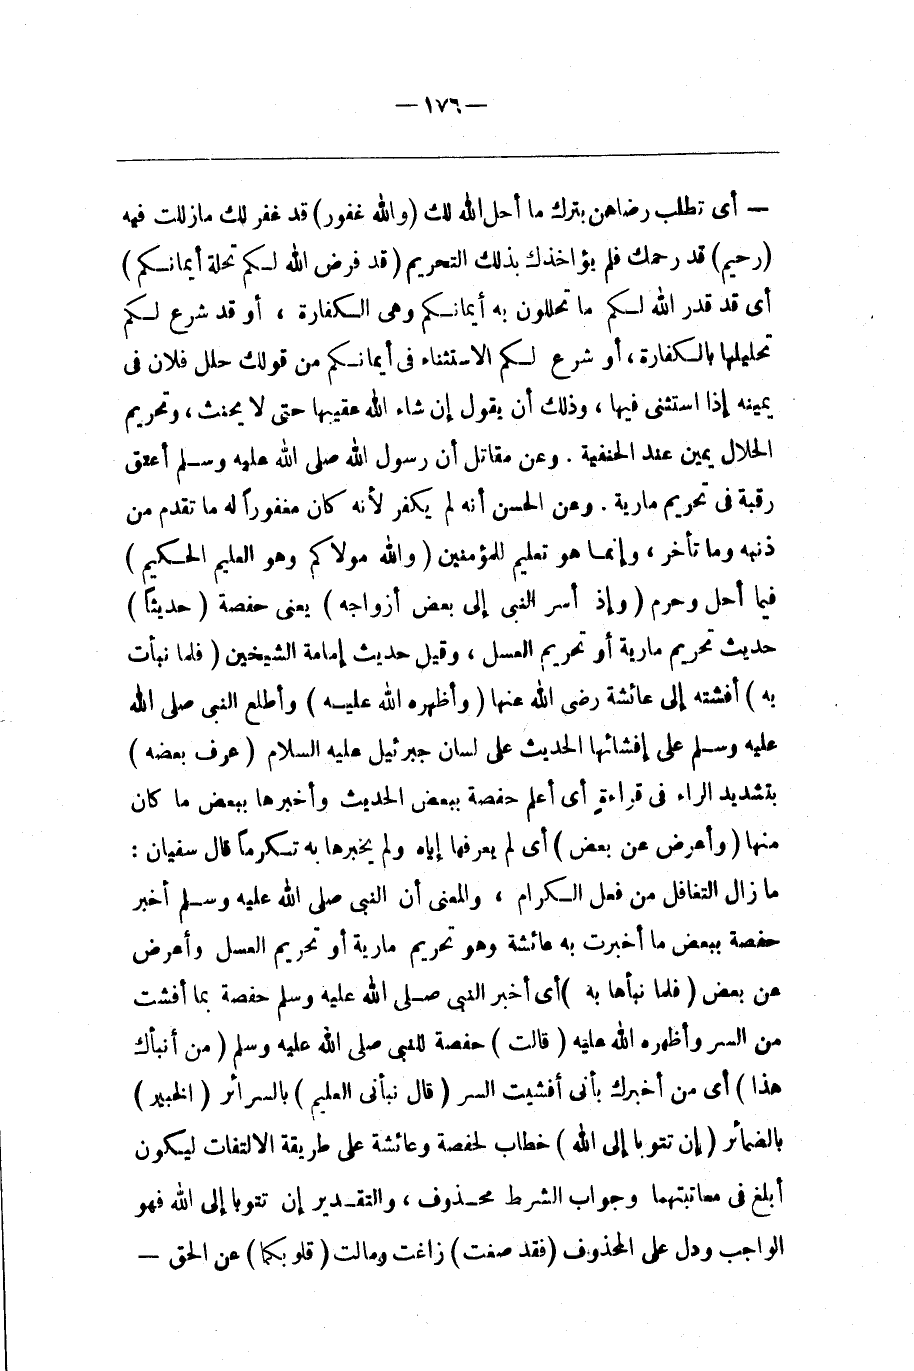 — ١٧٦ —
— أى تطلب رضاهن بترك ما أحل الله لك (والله غفور) قد غفر لك مازللت فيه
(رحيم) قد رحمك فلم يؤاخذك بذلك التحريم (قد فرض الله لكم تحلة أيمانكم)
أى قد قدر الله لكم ما تحللون به أيمانكم وهى الكفارة ، أو قد شرع لكم
تحليلها بالكفارة ، أو شرع لكم الاستثناء فى أيمانكم من قولك حلل فلان فى
يمينه إذا استثنى فيها ، وذلك أن يقول إن شاء الله عقيبها حتى لا يحنث ، وتحريم
الحلال يمين عند الحنفية . وعن مقاتل أن رسول الله صلى الله عليه وسلم أعتق
رقبة فى تحريم مارية . وعن الحسن أنه لم يكفر لأنه كان مغفوراً له ما تقدم من
ذنبه وما تأخر ، وإنما هو تعليم للمؤمنين ( والله مولاكم وهو العليم الحكيم )
فيما أحل وحرم ( وإذ أسر النبى إلى بعض أزواجه ) يعنى حفصة ( حديثاً )
حديث تحريم مارية أو تحريم العسل ، وقيل حديث إمامة الشيخين ( فلما نبأت
به ) أفشته إلى عائشة رضى الله عنها ( وأظهره الله عليه ) وأطلع النبى صلى الله
عليه وسلم على إفشائها الحديث على لسان جبرئيل عليه السلام ( عرف بعضه )
بتشديد الراء فى قراءةٍ أى أعلم حفصة ببعض الحديث وأخبرها ببعض ما كان
منها ( وأعرض عن بعض ) أى لم يعرفها إياه ولم يخبرها به تكرماً قال سفيان :
ما زال التغافل من فعل الكرام ، والمعنى أن النبى صلى الله عليه وسلم أخبر
حفصة ببعض ما أخبرت به عائشة وهو تحريم مارية أو تحريم العسل وأعرض
عن بعض ( فلما نبأها به ) أى أخبر النبى صلى الله عليه وسلم حفصة بما أفشت
من السر وأظهره الله عليه ( قالت ) حفصة للنبى صلى الله عليه وسلم ( من أنبأك
هذا ) أى من أخبرك بأنى أفشيت السر ( قال نبأنى العليم ) بالسرائر ( الخبير )
بالضمائر ( إن تتوبا إلى الله ) خطاب لحفصة وعائشة على طريقة الالتفات ليكون
أبلغ فى معاتبتهما وجواب الشرط محذوف ، والتقدير إن تتوبا إلى الله فهو
الواجب ودل على المحذوف (فقد صغت) زاغت ومالت ( قلوبكما ) عن الحق —